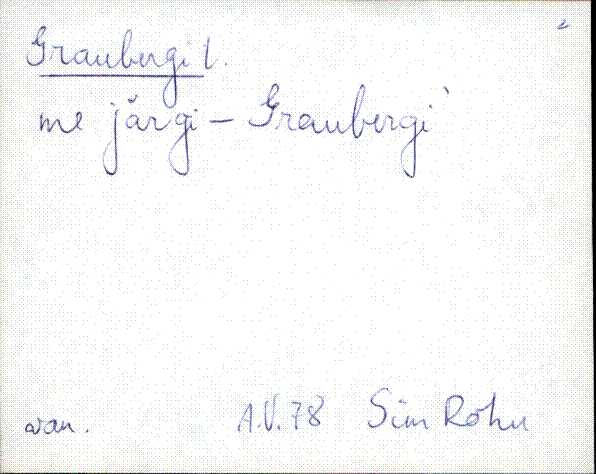 Graubergi t.
me järgi – Graubergi`
van. A.V.78 Sim Rohu